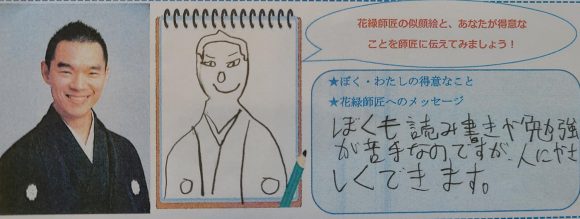 花緑師匠の似顔絵と、あなたが得意な
ことを師匠に伝えてみましょう！
★ぼく・わたしの得意なこと
★花緑師匠へのメッセージ
ぼくも読み書きや勉強
が苦手なのですが、人にやさ
しくできます。